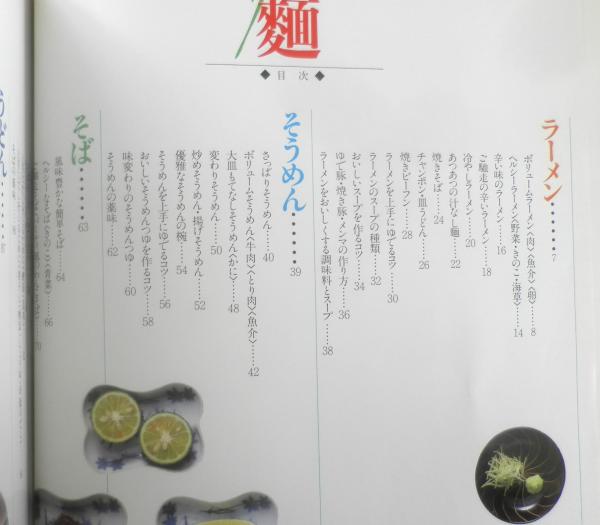 麵
◆目次◆
ラーメン……7
ボリュームラーメン〈肉〉〈魚介〉〈卵〉……8
ヘルシーラーメン〈野菜・きのこ・海草〉……14
辛い味のラーメン……16
ご馳走の辛いラーメン……18
冷やしラーメン……20
あつあつの汁なし麵……22
焼きそば……24
チャンポン・皿うどん……26
焼きビーフン……28
ラーメンを上手にゆでるコツ……30
ラーメンのスープの種類……32
おいしいスープを作るコツ……34
ゆで豚・焼き豚・メンマの作り方……36
ラーメンをおいしくする調味料とスープ……38
そうめん……39
さっぱりそうめん……40
ボリュームそうめん〈牛肉〉〈とり肉〉〈魚介〉……42
大皿もてなしそうめん〈かに〉……48
変わりそうめん……50
炒めそうめん・揚げそうめん……52
優雅なそうめんの椀……54
そうめんを上手にゆでるコツ……56
おいしいそうめんつゆを作るコツ……58
味変わりのそうめんつゆ……60
そうめんの薬味……62
そば……63
風味豊かな簡単そば……64
ヘルシーなそば〈きのこ〉〈青菜〉……66
70
うどん……